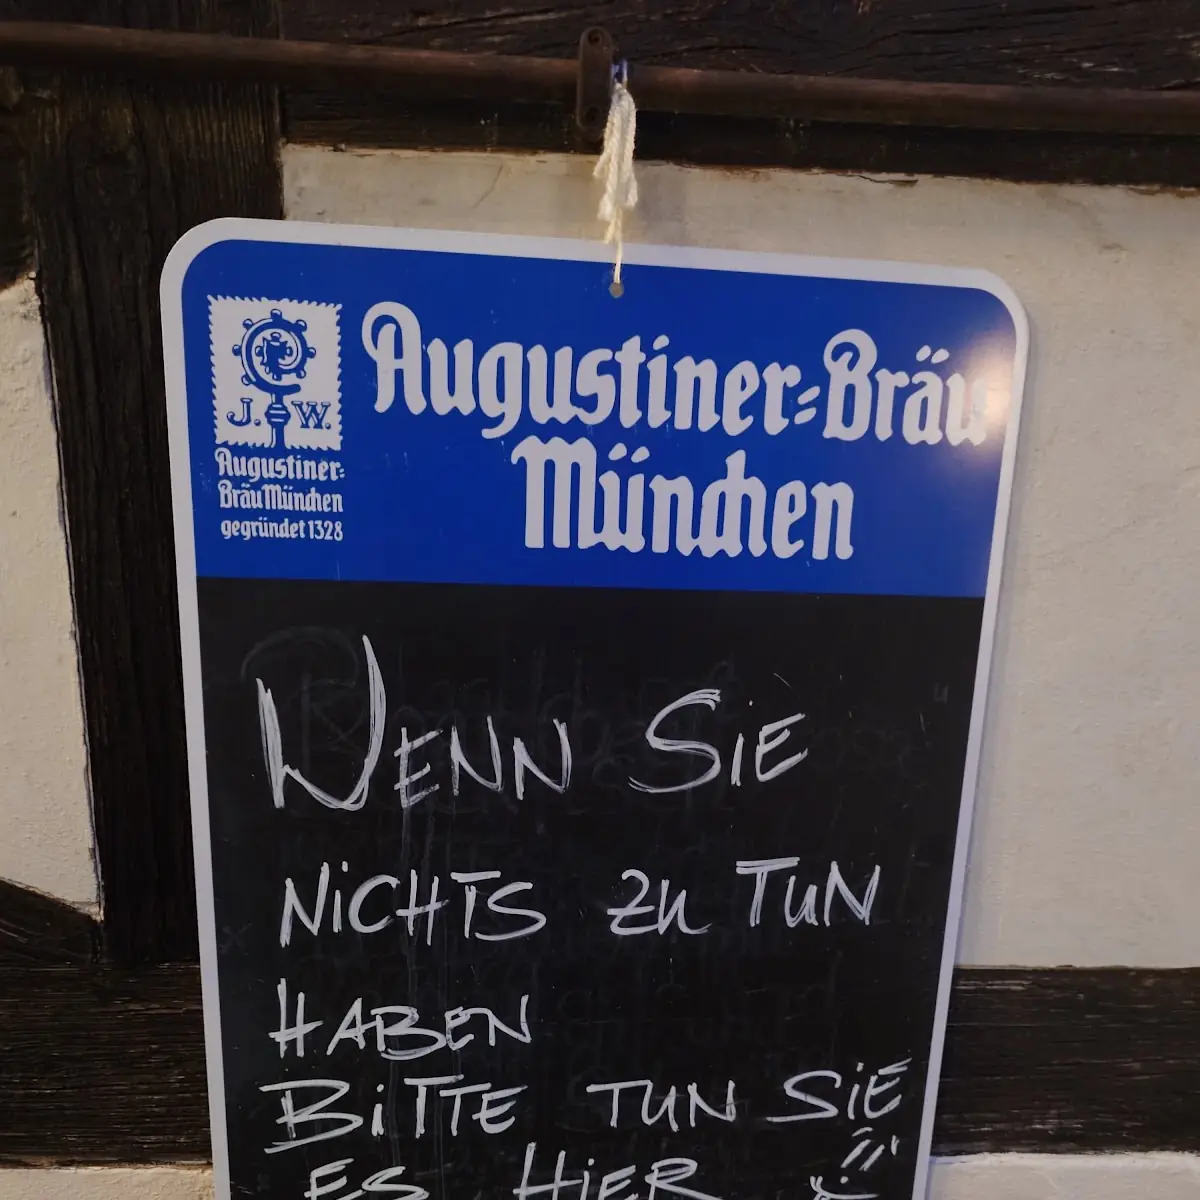 J. W.
Augustiner-
Bräu München
gegründet 1328
Augustiner-Bräu
München
WENN SIE
NiCHTS ZU TUN
HABEN
BiTTE TUN SiE
ES HiER